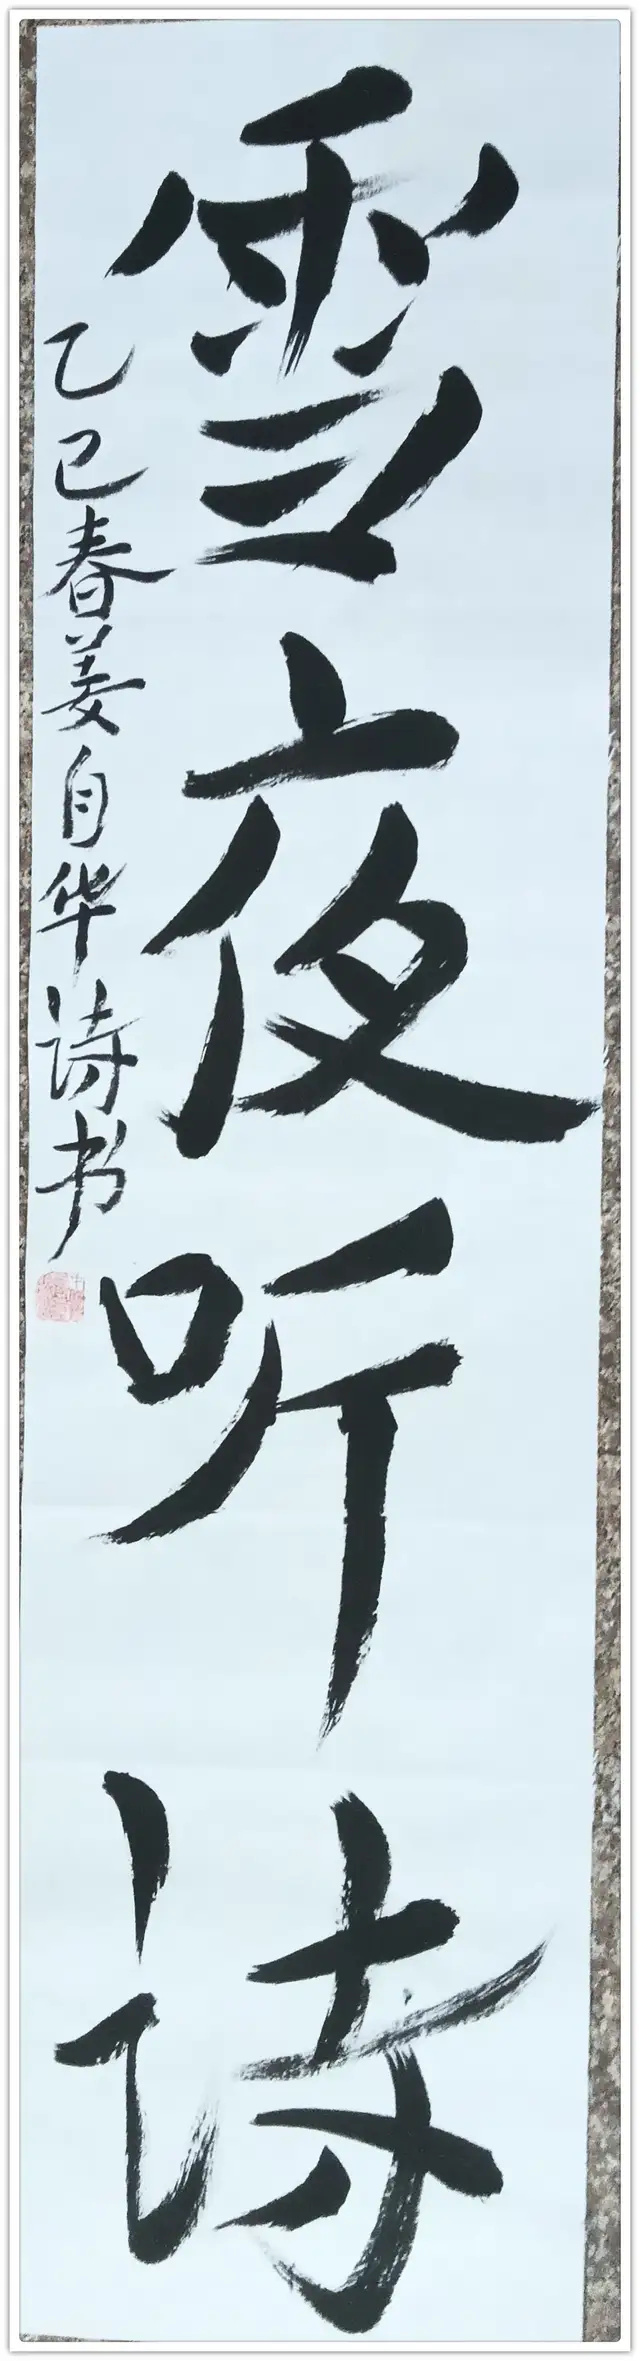 雪夜听诗
乙巳春姜自华诗书